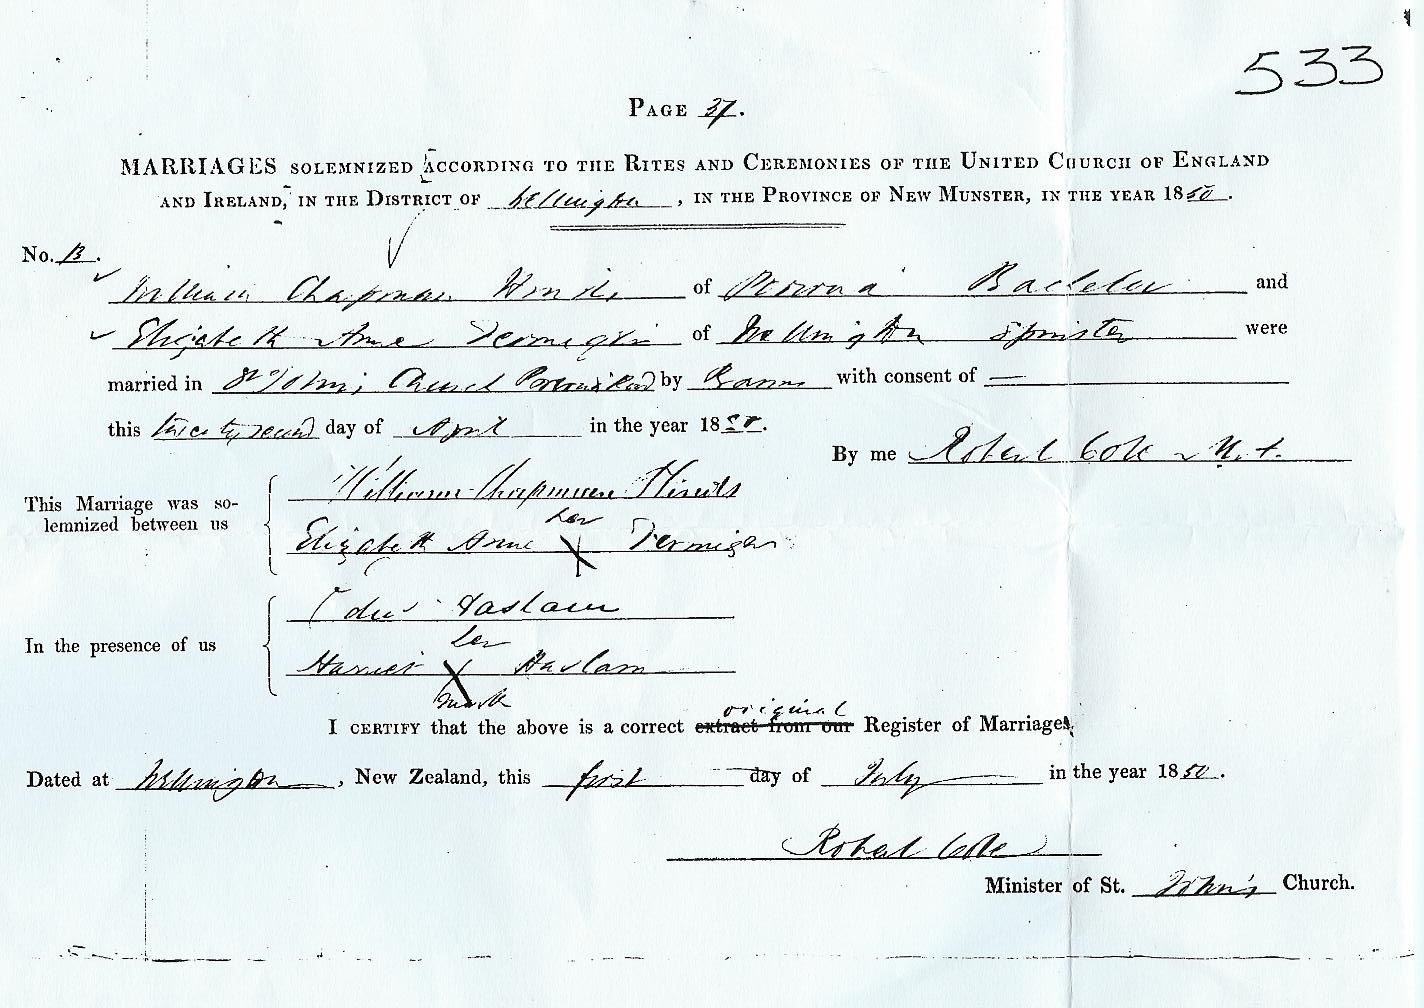 533
PAGE 37.
MARRIAGES SOLEMNIZED ACCORDING TO THE RITES AND CEREMONIES OF THE UNITED CHURCH OF ENGLAND
AND IRELAND, IN THE DISTRICT OF Wellington, IN THE PROVINCE OF NEW MUNSTER, IN THE YEAR 1850.
No. 13.
William Chapman Hinds of Porirua Bachelor and
Elizabeth Anne of Wellington Spinster were
married in St Johns Church by Banns with consent of —
this twenty second day of April in the year 1850.
By me Robert Cole
This Marriage was so-
lemnized between us
William Chapman Hinds
her
Elizabeth Anne X
In the presence of us
Haslam
her
Harriet X Haslam
mark
original
I CERTIFY that the above is a correct extract from our Register of Marriages.
Dated at Wellington, New Zealand, this first day of July in the year 1850.
Robert Cole
Minister of St. John's Church.